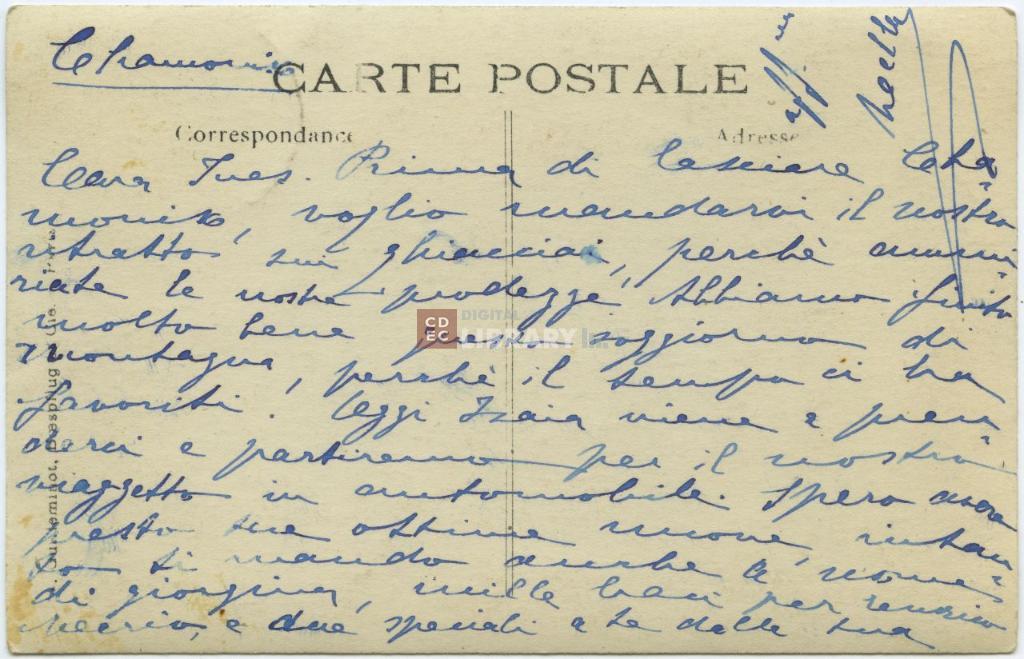 Chamonix
CARTE POSTALE
Correspondance
Adresse
Cara Ines. Prima di lasciare Cha-
monix, voglio mandarvi il nostro
ritratto sui ghiacciai, perchè ammi-
riate le nostre prodezze. Abbiamo finito
molto bene questo soggiorno di
montagna, perchè il tempo ci ha
favoriti. Oggi Isaia viene a pren-
derci e partiremo per il nostro
viaggetto in automobile. Spero avere
presto tue ottime nuove, intan-
to ti mando anche a nome
di Giorgina, mille baci per
e due speciali a te dalla tua
aff.ma
Nella
CDEC DIGITAL LIBRARY